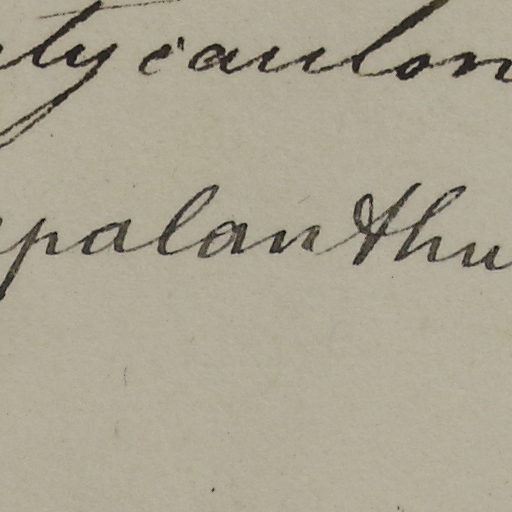 tycaulon
palanthu